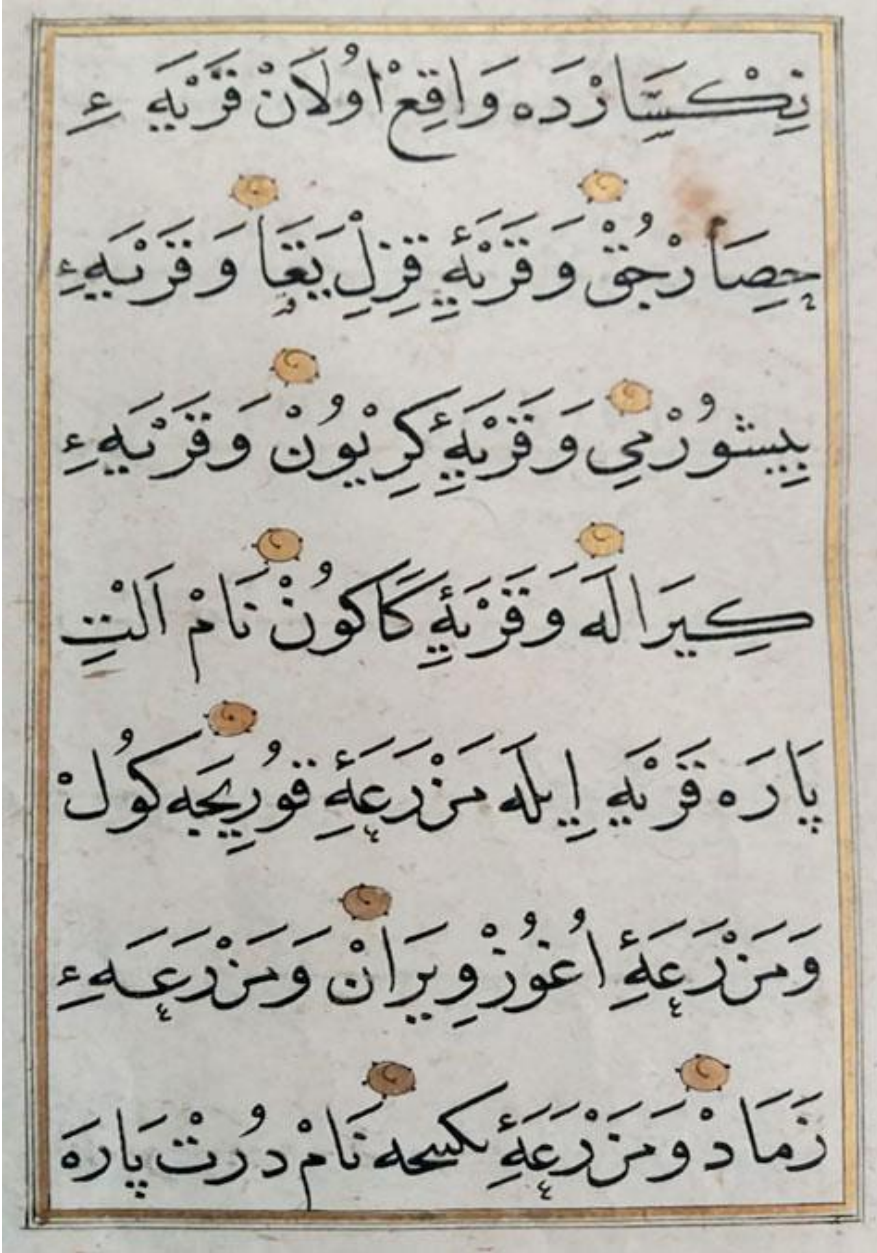 نِكْسَارْدَه وَاقِعْ اُولَانْ قَرْيَهِ ءِ
حِصَارْجُقْ وَقَرْيَۀِ قِزِلْ يَقَا وَقَرْيَهِ ءِ
بِيشُورْمِي وَقَرْيَۀِ كِرِيُونْ وَقَرْيَهِ ءِ
كِيرَالَه وَقَرْيَۀِ كَاكُونْ نَامْ اَلْتِ
پَارَه قَرْيَه اِيلَه مَزْرَعَۀِ قُورِيجَه كُولْ
وَمَزْرَعَۀِ اُغُوزْ وِيرَانْ وَمَزْرَعَهِ ءِ
زَمَادْ وَمَزْرَعَۀِ نَامْ دُرْتْ پَارَه